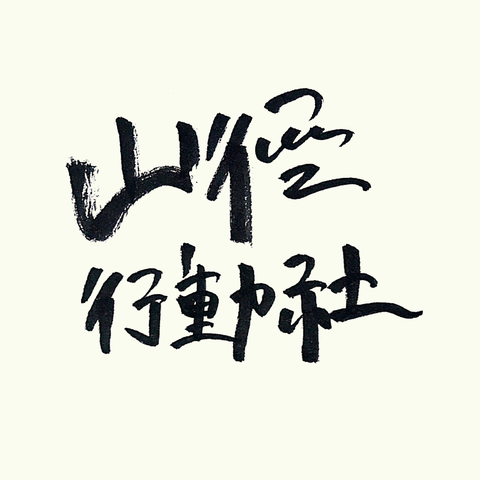 山徑
行動社